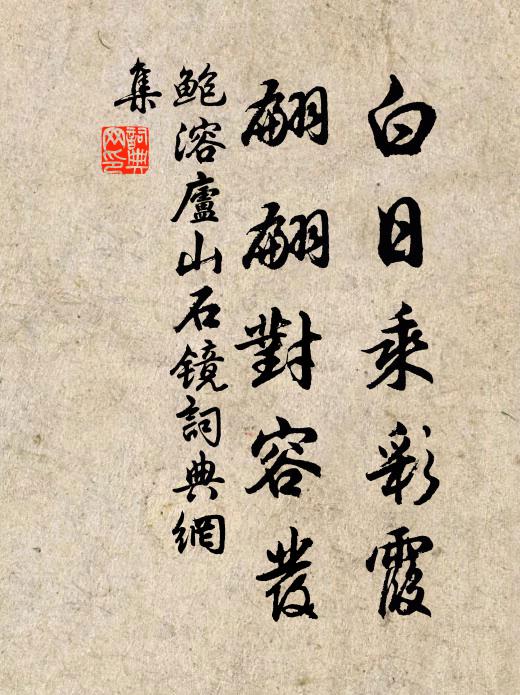 白日乘彩霞
翩翩對容發
鮑溶廬山石鏡詞典網
集
詞典
网印